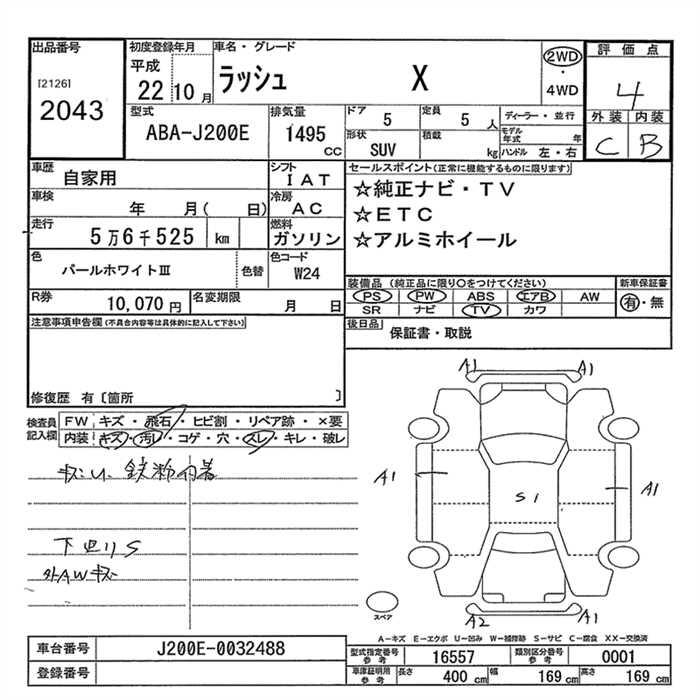 出品番号
[2126]
2043
初度登録年月
平成
22 10月
車名・グレード
ラッシュ X
2WD
・
4WD
評価点
4
外装 内装
C B
型式
ABA-J200E
排気量
1495
CC
ドア 5
定員 5 人
形状 SUV
積載 kg
ディーラー・並行
モデル年式 年
ハンドル 左・右
車歴
自家用
シフト
IAT
車検
年 月( 日)
冷房
AC
走行
5万6千525 km
燃料
ガソリン
色
パールホワイトⅢ
色替
色コード
W24
R券 10,070 円
名変期限 月 日
セールスポイント(正常に機能するものに限ります)
☆純正ナビ・TV
☆ETC
☆アルミホイール
装備品(純正品に限り〇をつけてください)
PS PW ABS エアB AW
SR ナビ TV カワ
新車保証書
有・無
後日品 保証書・取説
注意事項申告欄(不具合内容等は具体的に記入して下さい)
修復歴 有〔箇所 〕
検査員記入欄
FW キズ・飛石・ヒビ割・リペア跡・×要
内装 キズ・汚レ・コゲ・穴・スレ・キレ・破レ
鉄粉付着
下廻りS
外AWキズ
A1 A1
A1 S1 A1
A2 A1
スペア
A-キズ E-エクボ U-凹み W-補修跡 S-サビ C-腐食 XX-交換済
車台番号 J200E-0032488
登録番号
型式指定番号参考 16557
類別区分番号参考 0001
車庫証明用参考 長さ 400 cm 幅 169 cm 高さ 169 cm